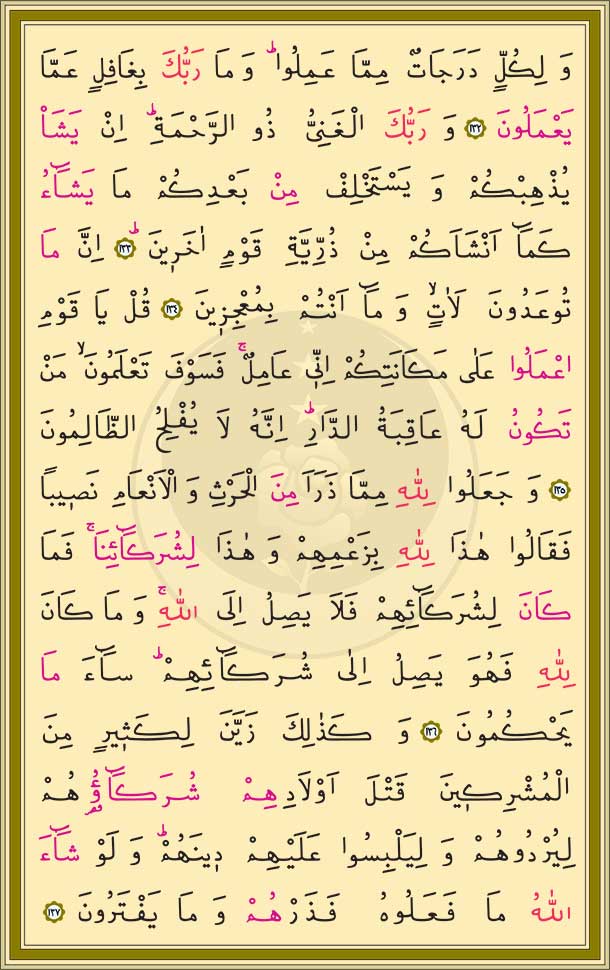 وَ لِكُلٍّ دَرَجَاتٌ مِمَّا عَمِلُواۜ وَ مَا رَبُّكَ بِغَافِلٍ عَمَّا
يَعْمَلُونَ ﴿١٣٢﴾ وَ رَبُّكَ الْغَنِىُّ ذُو الرَّحْمَةِۜ اِنْ يَشَأْ
يُذْهِبْكُمْ وَ يَسْتَخْلِفْ مِنْ بَعْدِكُمْ مَا يَشَاۤءُ
كَمَاۤ اَنْشَاَكُمْ مِنْ ذُرِّيَّةِ قَوْمٍ اٰخَرٖينَۜ ﴿١٣٣﴾ اِنَّ مَا
تُوعَدُونَ لَاٰتٍۙ وَ مَاۤ اَنْتُمْ بِمُعْجِزٖينَ ﴿١٣٤﴾ قُلْ يَا قَوْمِ
اعْمَلُوا عَلٰى مَكَانَتِكُمْ اِنّٖى عَامِلٌۚ فَسَوْفَ تَعْلَمُونَۙ مَنْ
تَكُونُ لَهُ عَاقِبَةُ الدَّارِۜ اِنَّهُ لَا يُفْلِحُ الظَّالِمُونَ
﴿١٣٥﴾ وَ جَعَلُوا لِلّٰهِ مِمَّا ذَرَاَ مِنَ الْحَرْثِ وَ الْاَنْعَامِ نَصٖيبًا
فَقَالُوا هٰذَا لِلّٰهِ بِزَعْمِهِمْ وَ هٰذَا لِشُرَكَاۤئِنَاۚ فَمَا
كَانَ لِشُرَكَاۤئِهِمْ فَلَا يَصِلُ اِلَى اللّٰهِۚ وَ مَا كَانَ
لِلّٰهِ فَهُوَ يَصِلُ اِلٰى شُرَكَاۤئِهِمْۜ سَاۤءَ مَا
يَحْكُمُونَ ﴿١٣٦﴾ وَ كَذٰلِكَ زَيَّنَ لِكَثٖيرٍ مِنَ
الْمُشْرِكٖينَ قَتْلَ اَوْلَادِهِمْ شُرَكَاۤؤُهُمْ
لِيُرْدُوهُمْ وَ لِيَلْبِسُوا عَلَيْهِمْ دٖينَهُمْۜ وَ لَوْ شَاۤءَ
اللّٰهُ مَا فَعَلُوهُ فَذَرْهُمْ وَ مَا يَفْتَرُونَ ﴿١٣٧﴾